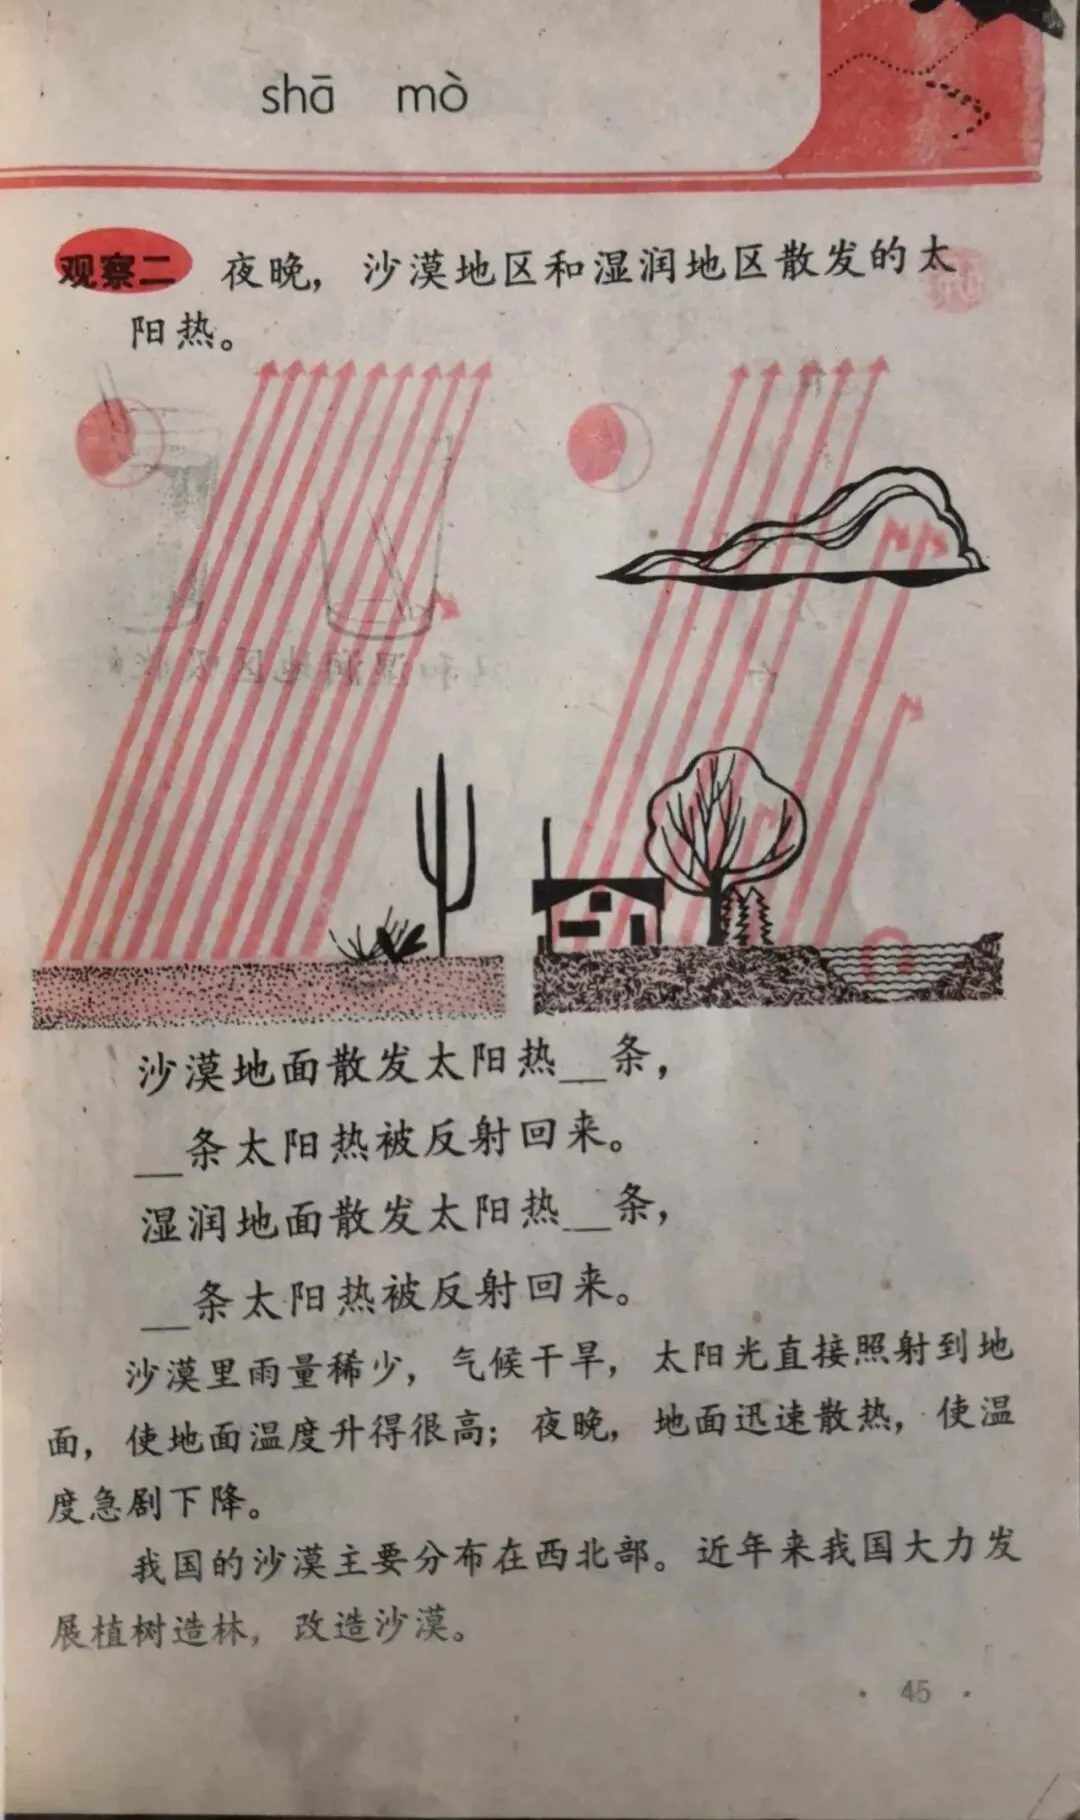 shā mò
观察二 夜晚，沙漠地区和湿润地区散发的太
阳热。
沙漠地面散发太阳热__条，
__条太阳热被反射回来。
湿润地面散发太阳热__条，
__条太阳热被反射回来。
沙漠里雨量稀少，气候干旱，太阳光直接照射到地
面，使地面温度升得很高；夜晚，地面迅速散热，使温
度急剧下降。
我国的沙漠主要分布在西北部。近年来我国大力发
展植树造林，改造沙漠。
· 45 ·